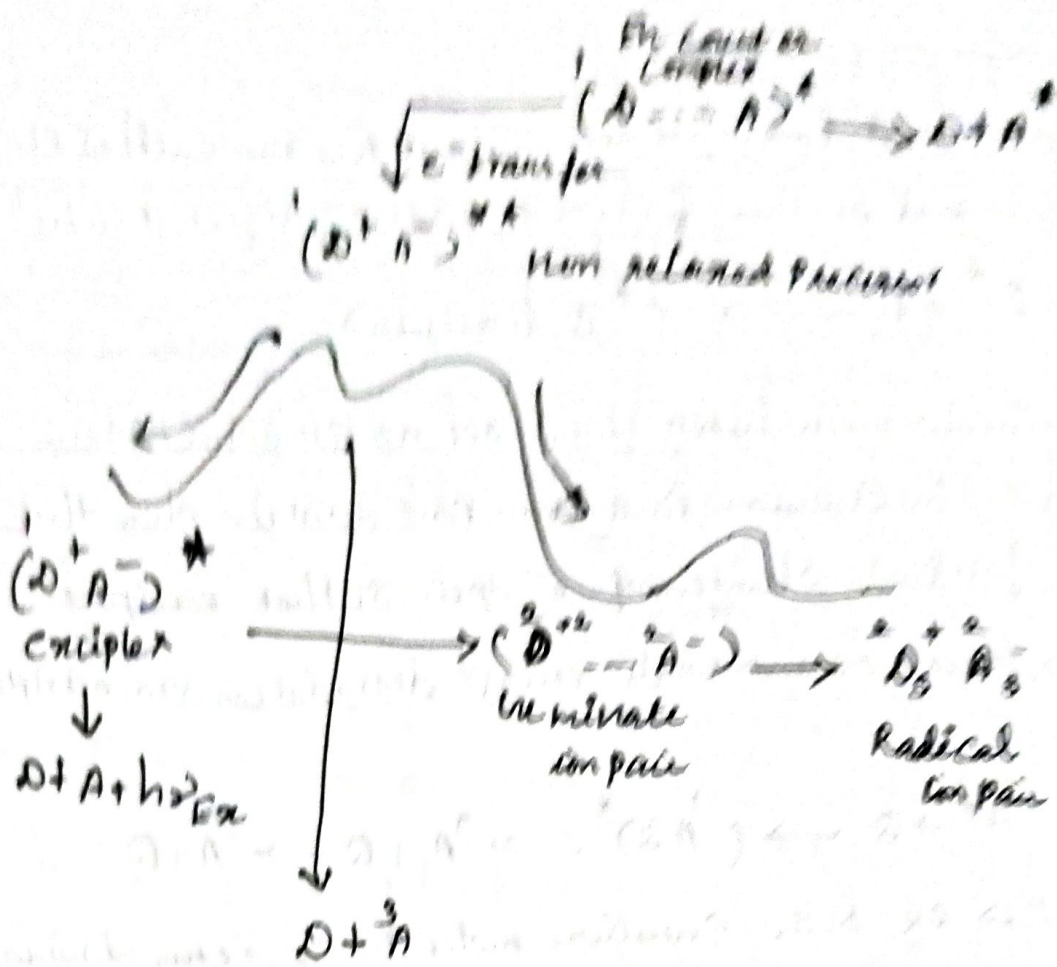 Encounter
Complex
¹(D --- A)* → D + A*
e⁻ transfer
¹(D⁺ A⁻)** non relaxed precursor
¹(D⁺ A⁻)*
Exciplex
(²D⁺ --- ²A⁻) → ²D⁺ₛ ²A⁻ₛ
ion pair
Radical
ion pair
D + A + hνEx
D + ³A